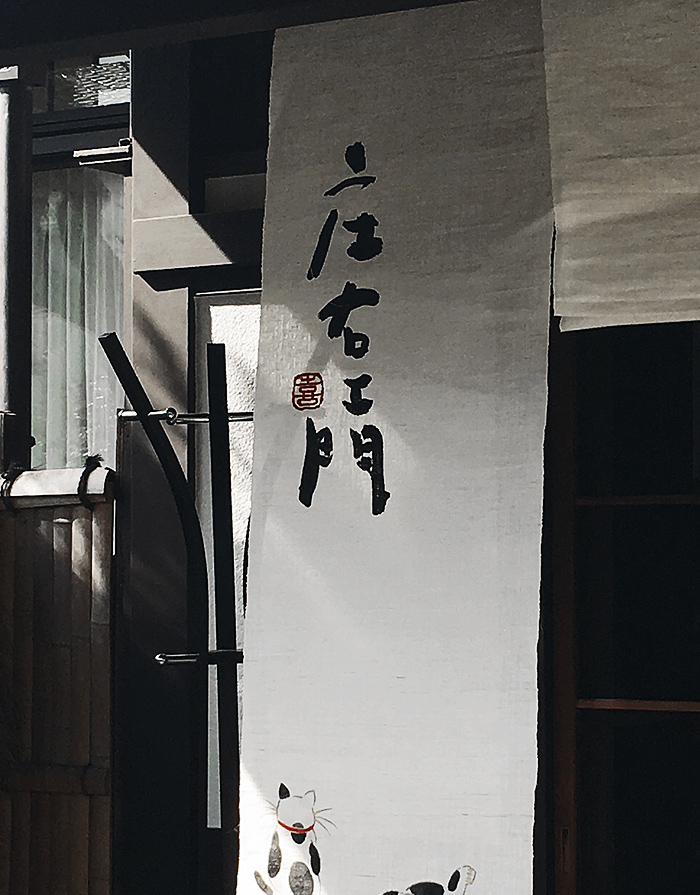 庄右エ門
喜